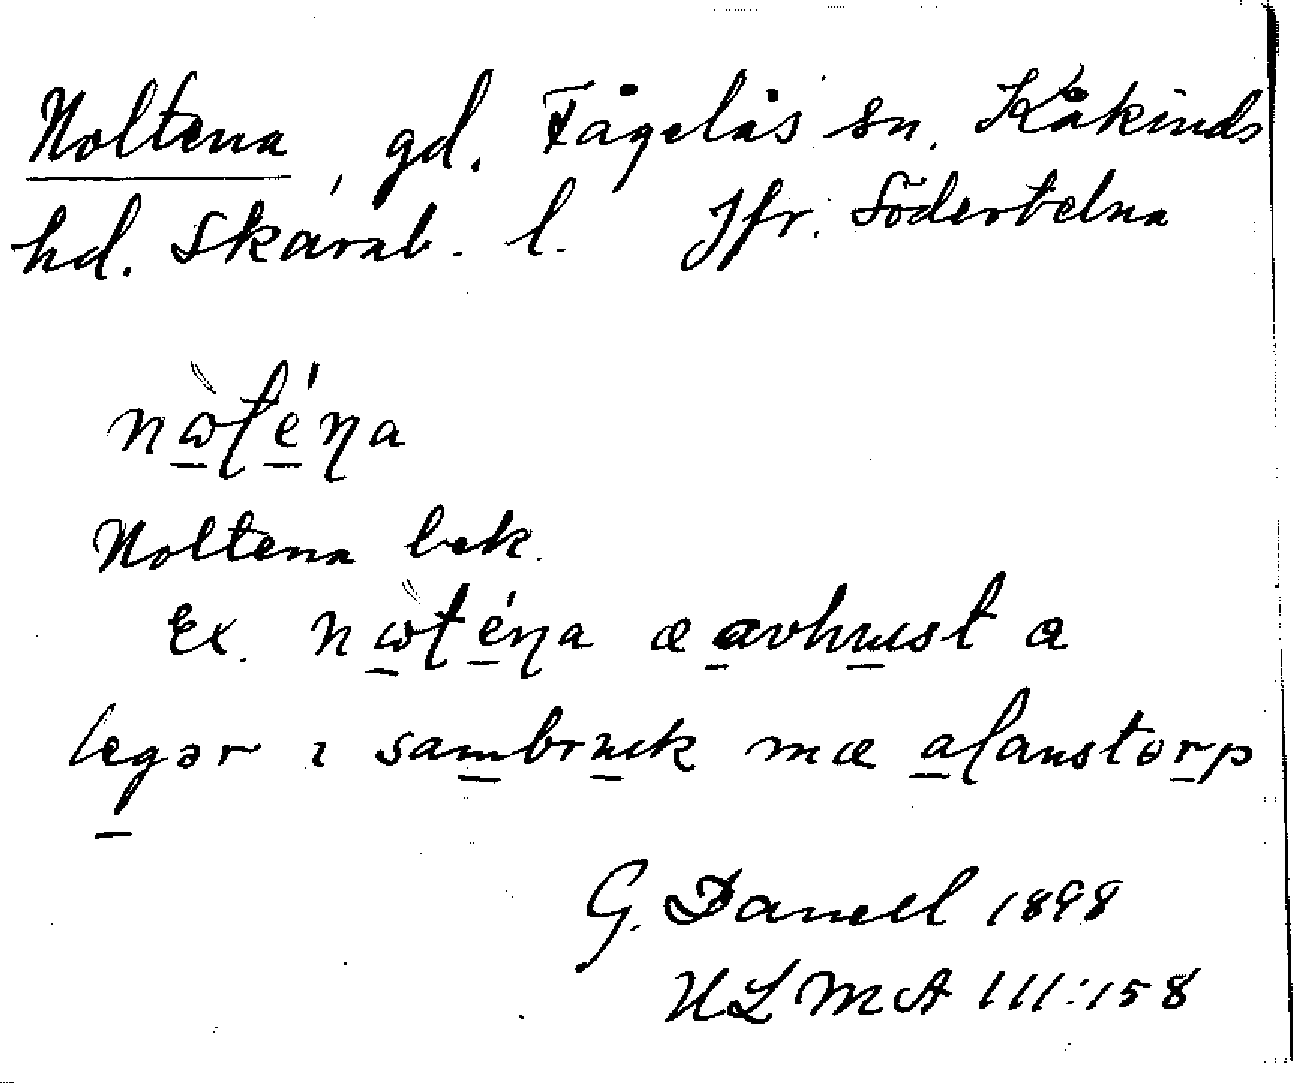 Noltena, gd. Fågelås sn. Kåkinds
hd. Skarab. l. Jfr. Södertelna
Noltena bek.
Ex. æ avhust a
legər i sambruk mæ alanstorp
G. Danell 1898
ULMA 111:158